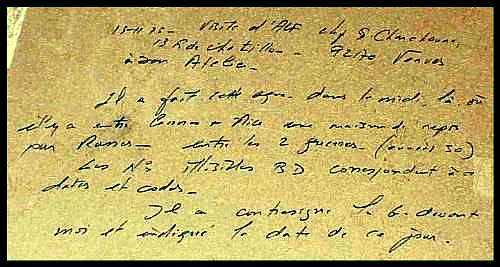 15-11-75- Visite d'ALF chez S. Charchoune,
13 R de chatillon - 92170 Vanves
à son Atelier-
Il a fait cette aqua. dans le midi, là où
il y a entre Cannes & Nice une maison de repos
pour Russes - entre les 2 guerres (années 30)
Les Nos visibles BD correspondent à
dates et codes-
Il a contresigné le G. devant
moi et indiqué la date de ce jour.